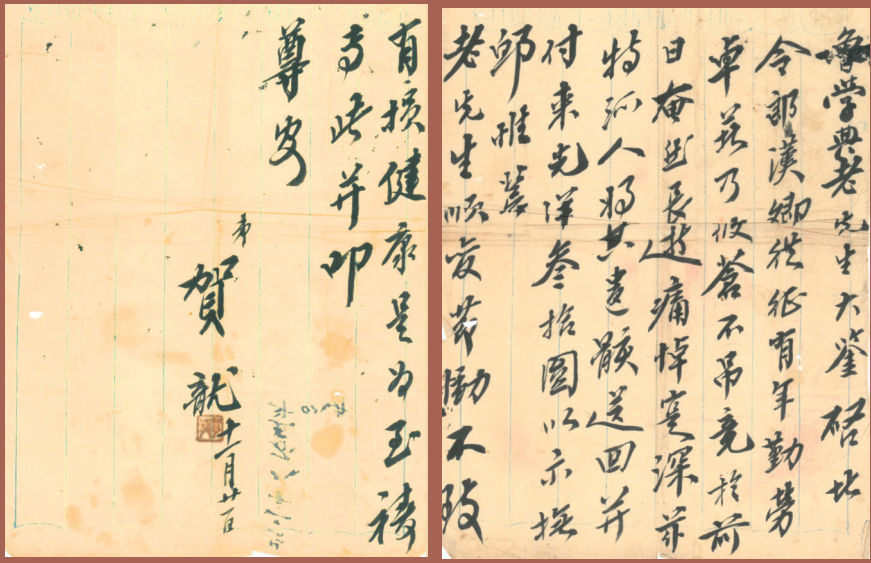 魯學典老先生大鑒
令郎漢卿從征有年勤勞
卓著乃彼蒼不吊竟於前
日奄然長逝痛悼寔深茲
特派人將其遺骸送回并
付来光洋叁拾圓以示撫
卹惟冀
老先生順变節慟不致
有損健康是为至禱
专此并叩
尊安
弟
賀龍 十一月廿一日